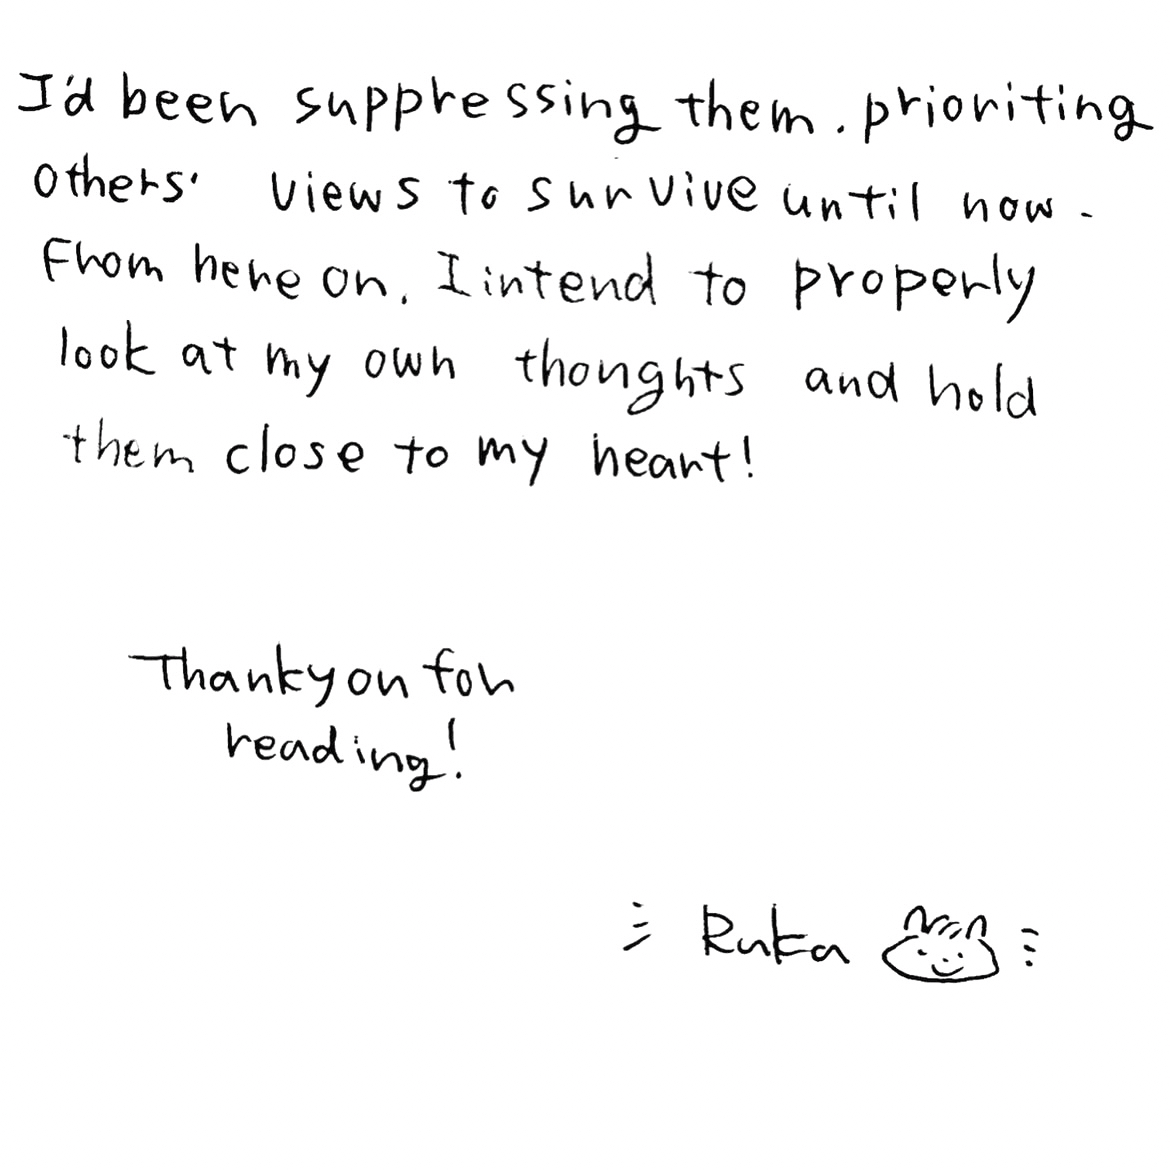 I'd been suppressing them. prioriting
others' views to survive until now.
From here on, I intend to properly
look at my own thoughts and hold
them close to my heart!
Thank you for
reading!
Ruka